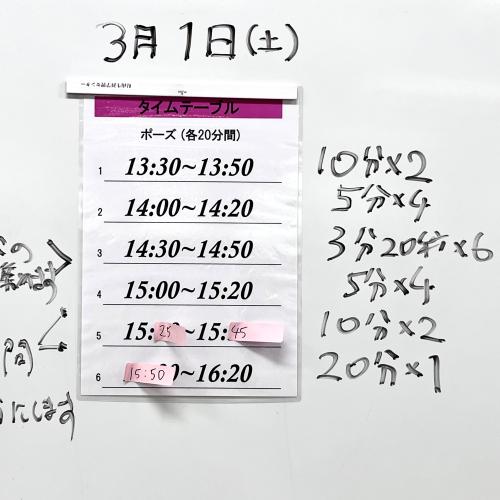 3月1日(土)
タイムテーブル
ポーズ (各20分間)
1 13:30~13:50
2 14:00~14:20
3 14:30~14:50
4 15:00~15:20
5 15:25~15:45
6 15:50~16:20
10分×2
5分×4
3分20秒×6
5分×4
10分×2
20分×1
の
集めます
間
にします